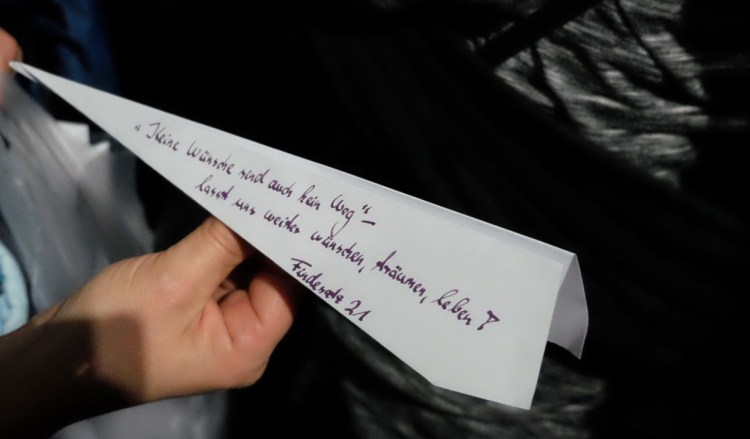 "Keine Wünsche sind auch kein Weg"–
lasst uns weiter wünschen, träumen, leben!
Findesatz 21